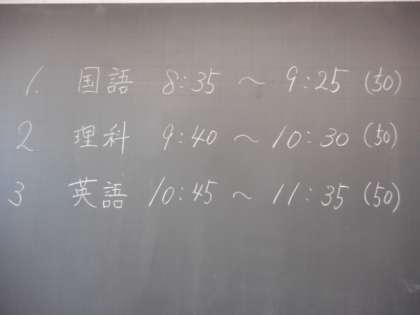 1. 国語 8:35 〜 9:25 (50)
2 理科 9:40 〜 10:30 (50)
3 英語 10:45 〜 11:35 (50)